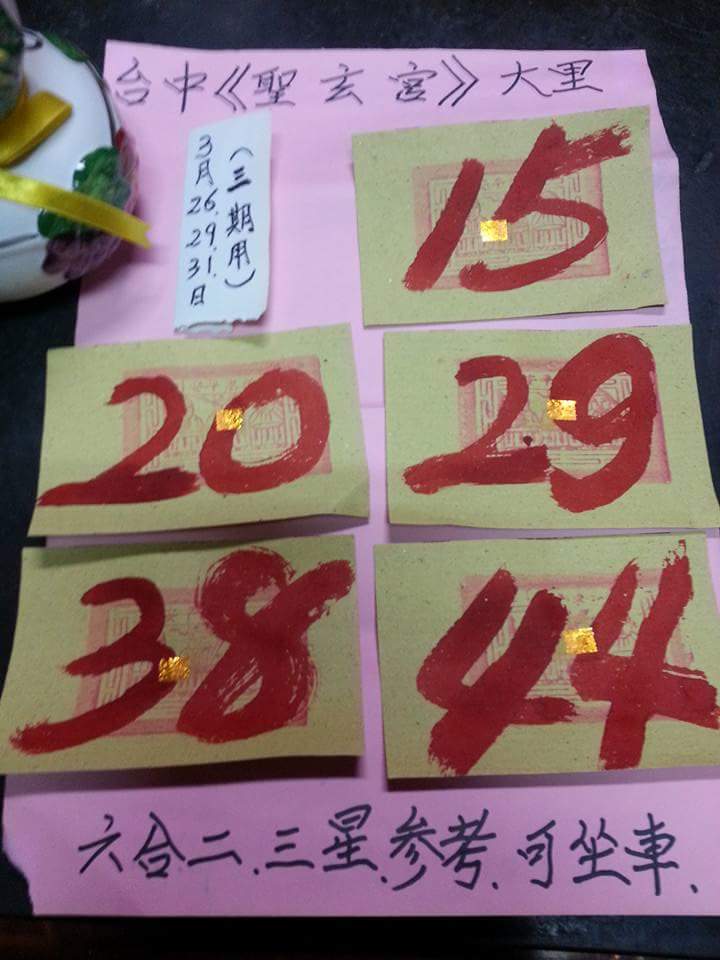 台中《聖玄宮》大里
(三期用)
3月26.29.31.日
15
20
29
38
44
六合二.三星.参考.可坐車.